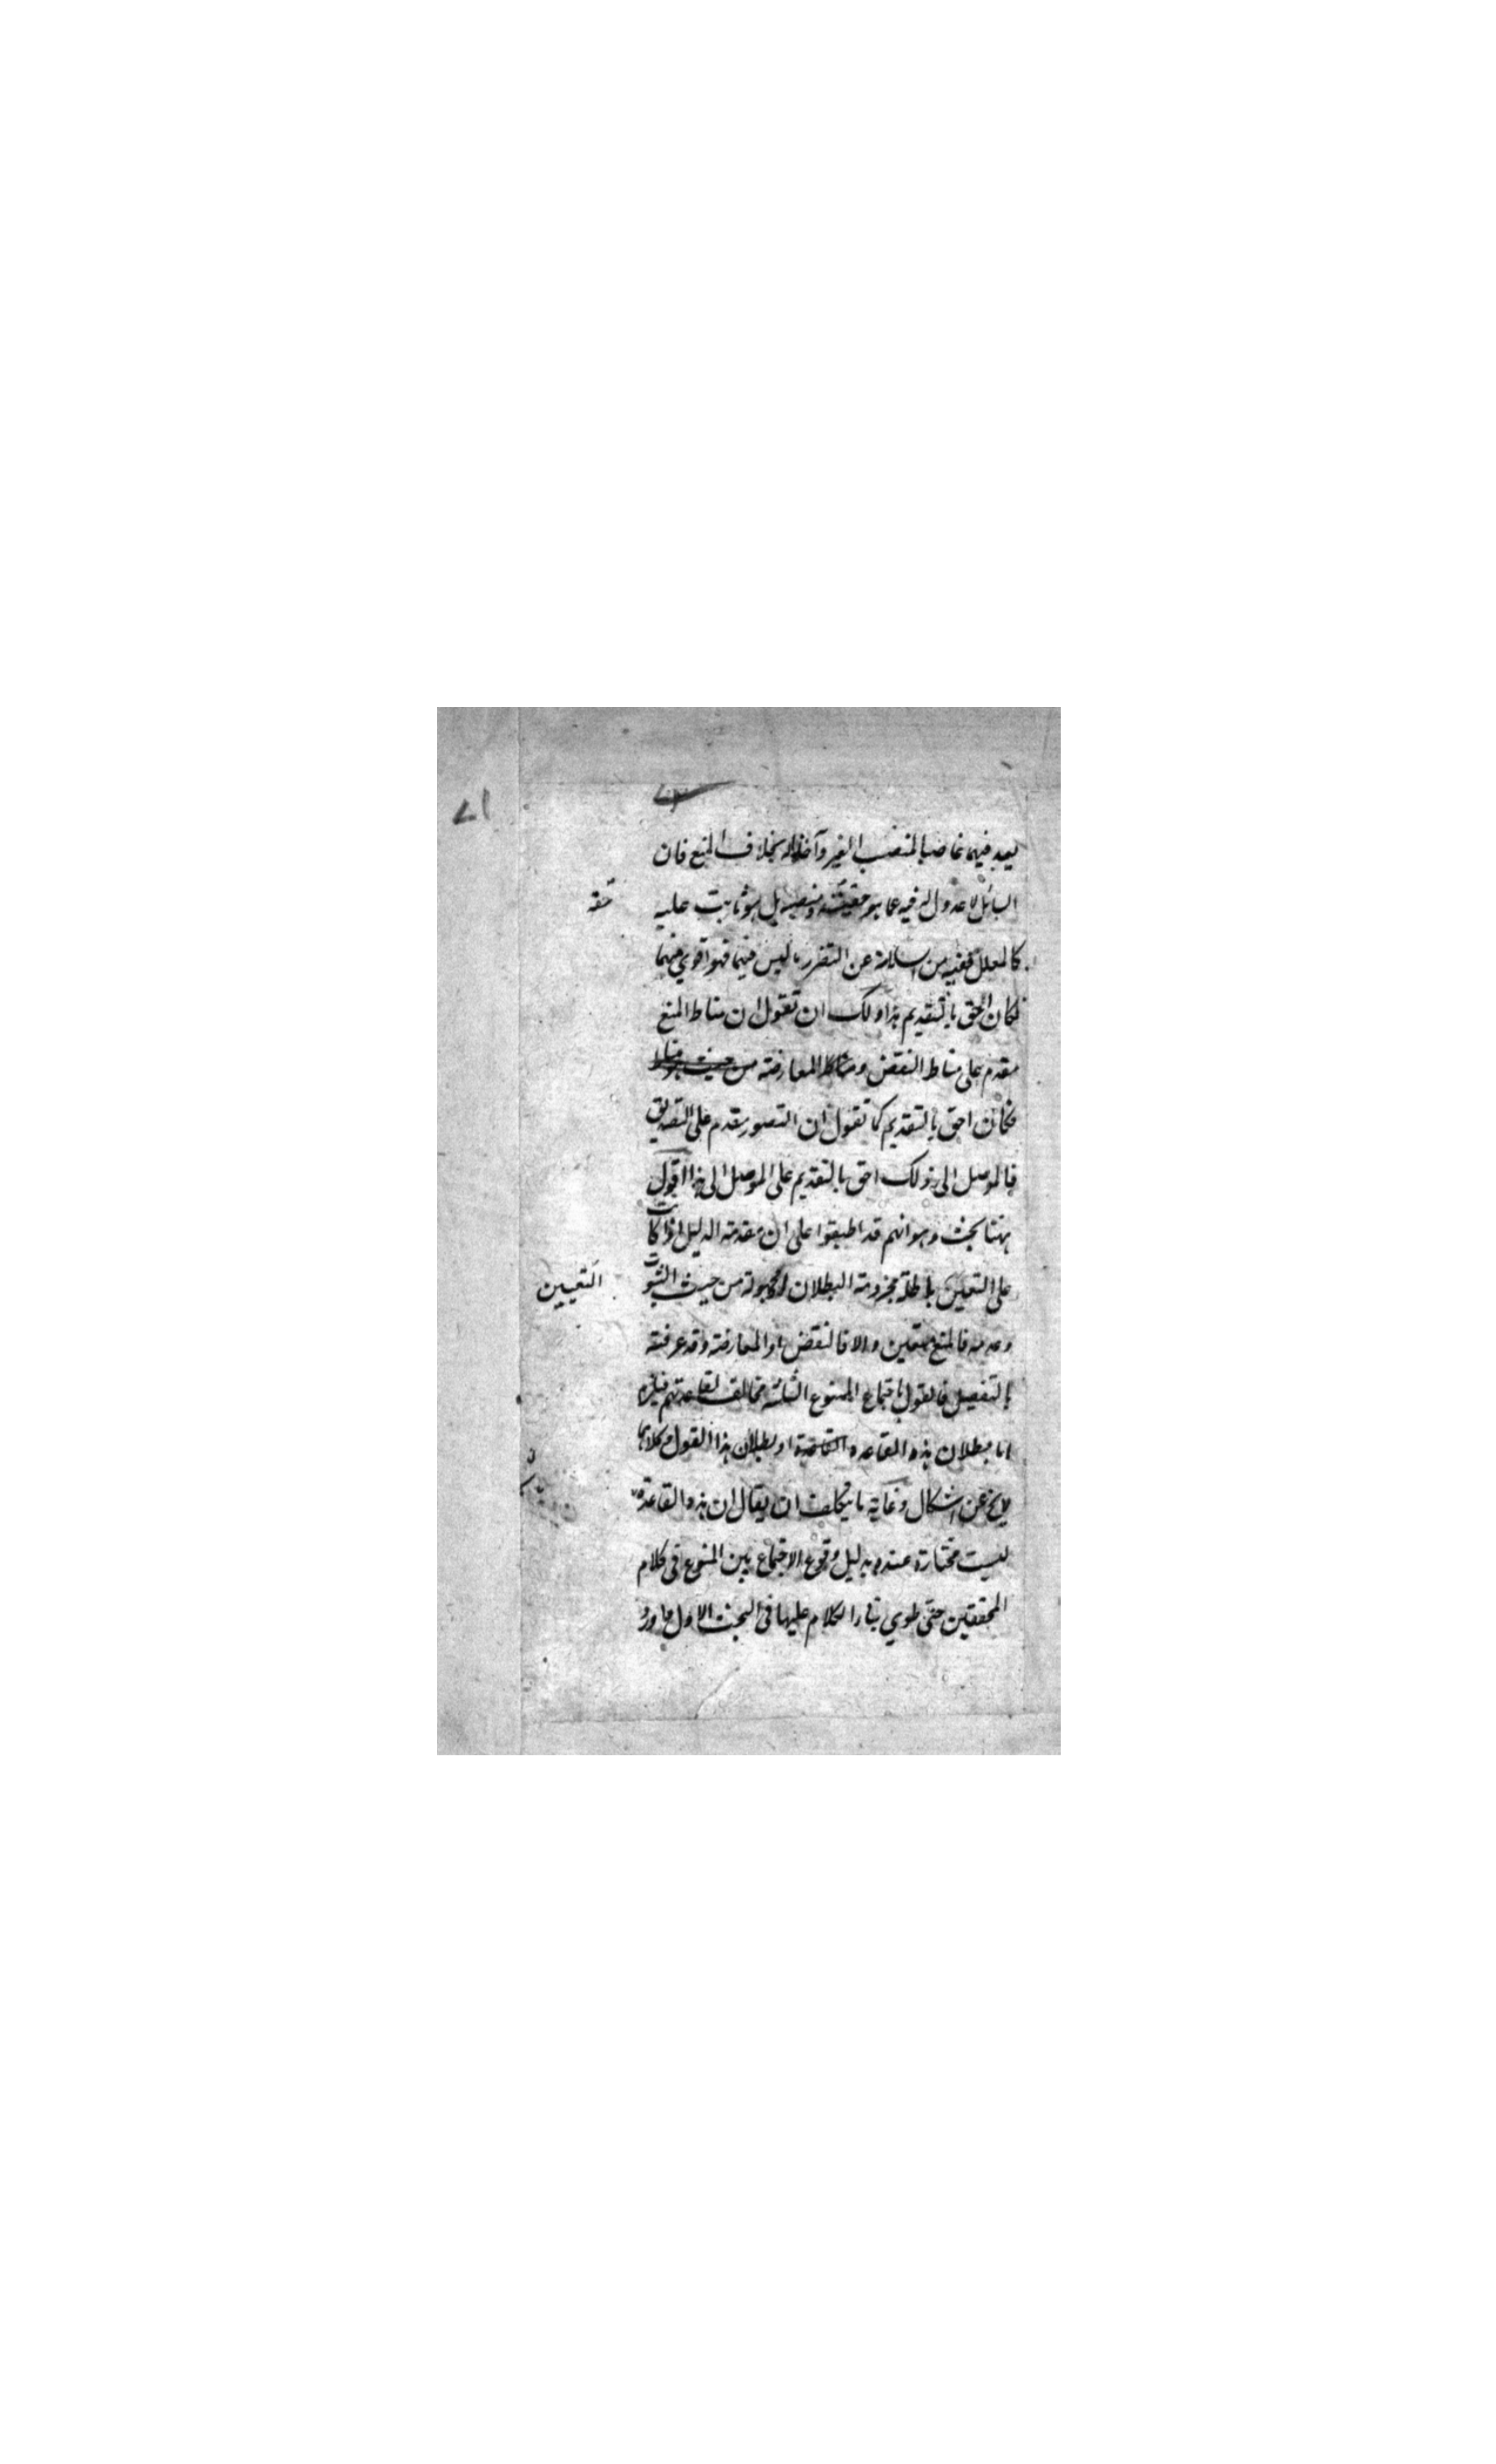 يعد فيهما غاصبا لمنصب الغير وآخذا له بخلاف المنع فان
السائل لا عدول له فيه عما هو حقيقته ومنصبه بل هو ثابت عليه
حقه
كالمعلل ففيه من السلامة عن التضرر ما ليس فيهما فهو اقوي منهما
فكان احق بالتقديم هذا ولك ان تقول ان مناط المنع
مقدم على مناط النقض ومناط المعارضة
فكان احق بالتقديم كما تقول ان التصور مقدم على التصديق
فالموصل الى ذلك احق بالتقديم على الموصل الى هذا اقول
ههنا بحث وهو انهم قد اطبقوا على ان مقدمة الدليل اذا كانت
على التعيين باطلة مجزومة البطلان او مجهولة من حيث الثبوت
التعيين
وعدمه فالمنع متعين والا فالنقض او المعارضة وقد عرفته
بالتفصيل فالقول باجتماع المنوع الثلثة مخالف لقاعدتهم فيلزم
اما بطلان هذه القاعدة او بطلان هذا القول وكلاهما
لا يخ عن اشكال وغاية ما يتكلف ان يقال ان هذه القاعدة
ليست مختارة عنده بدليل وقوع الاجتماع بين المنوع في كلام
المحققين حتى طوي الكلام عليها في البحث الاول وما ورد